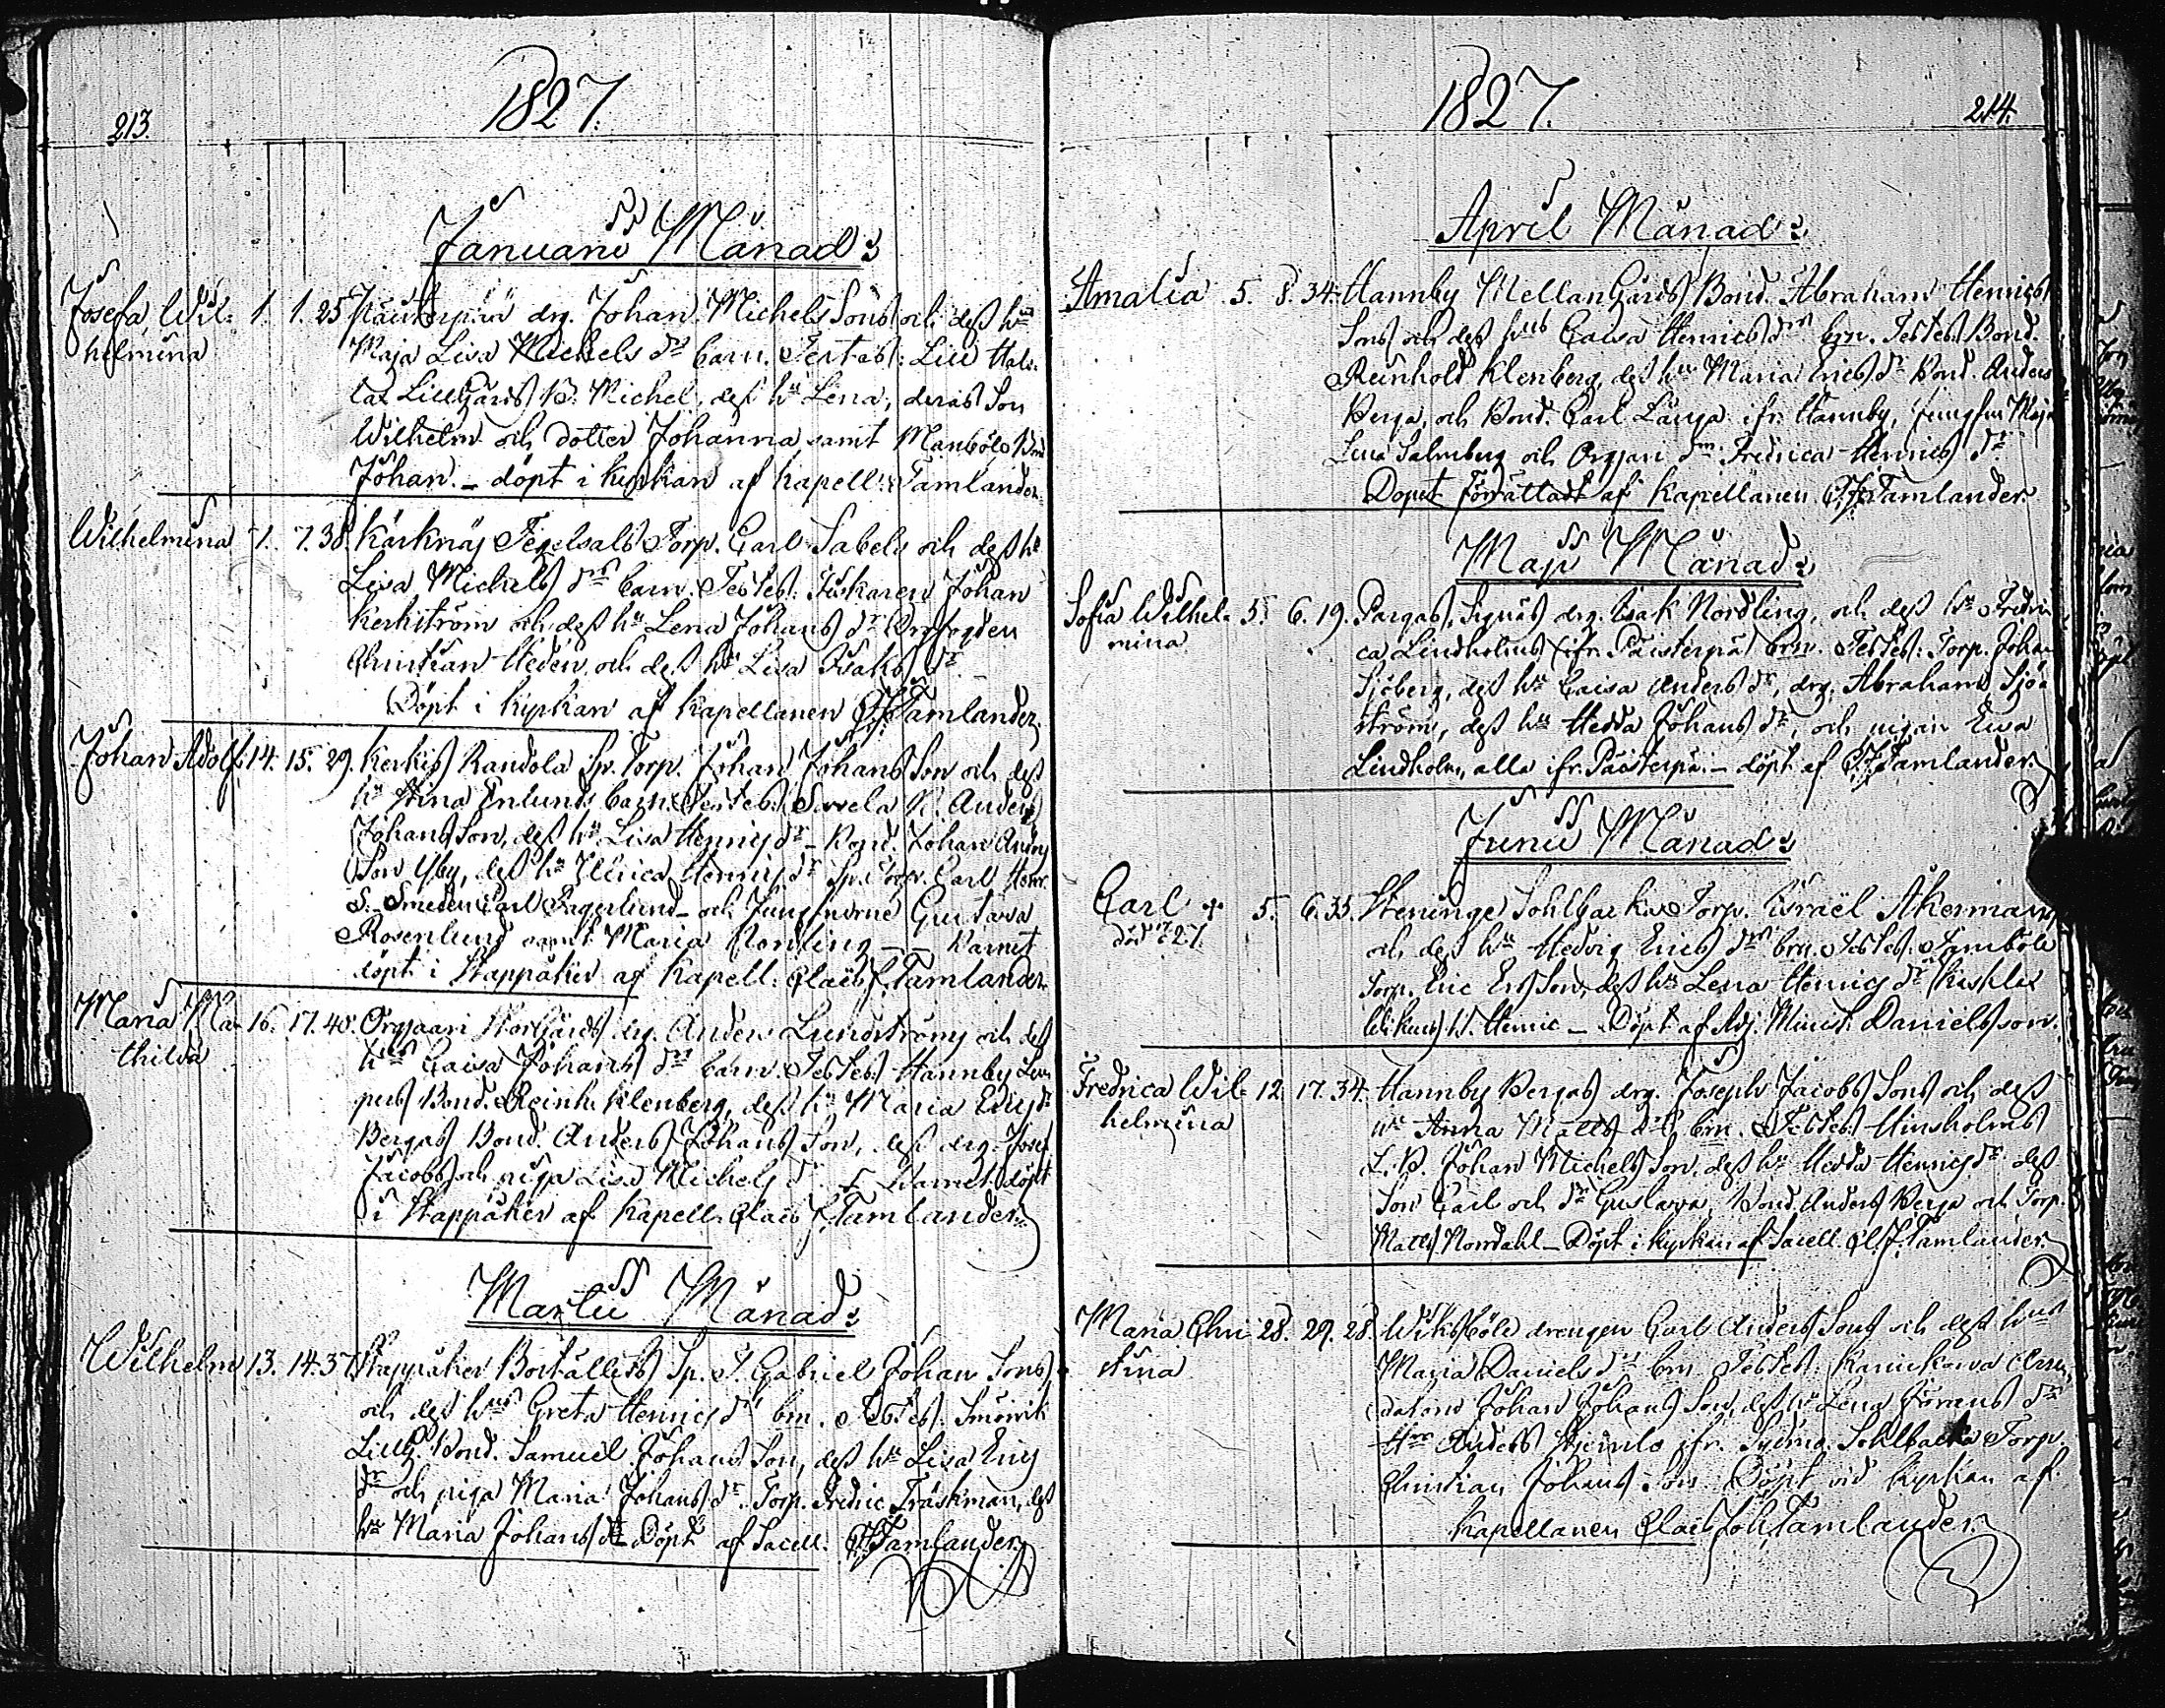 213.
1827.
Januarii Månad:
Josefa Wil= 1. 1. 25. drg. Johan Michels Sons och dess hus
helmina Maja Lisa Michels drs barn. Testes: Lill
Lillgårds B. Michel, dess hu Lena, deras Son
Wilhelm och dotter Johanna samt Manböle Bond
Johan. – döpt i Kyrkan af Kapell: Tamlander.
Wilhelmina 7. 7. 38. Kärknäs Torp. Carl Sabels och dess hu
Lisa Michels drs barn. Testes: Fiskaren Johan
Kerkström och dess hu Lena Johans dr
Christian Hedén, och dess hu Lisa Isaks dr
Döpt i Kyrkan af Kapellanen C. J. Tamlander.
Johan Adolf. 14. 15. 29. Kerkis Randola Sp. Torp. Johan Johans Son och dess
hu Stina Enlunds barn. Testes: B. Anders
Johans Son, dess hu Lisa Henrics dr – Bond. Johan
Son Yby, dess hu Ulrica Henrics dr Sp. Torp. Carl Henr.
S. – Smeden Carl Fagerlund – och Jungfrurne Gustava
Rosenlund samt Maria Nordling – – Barnet
döpt i Stappåker af Kapell: Claës J. Tamlander.
Maria Ma= 16. 17. 40. Orgjaari Storgårds drg. Anders Lundströms och dess
thilda hus Caisa Johans drs barn. Testes: Hannby
Bond. Reinh. Klenberg, dess hu Maria Erics dr
Bergas Bond. Anders Johans Son, dess drg. Josef
Jacobs och piga Lisa Michels dr – Barnet döpt
i Stappåker af Kapell. Claës J. Tamlander.
Martii Månad:
Wilhelm 13. 14. 37. Stappåker Boställets Sp. T. Gabriel Johan Sons
och dess hus Greta Henrics drs brn. Testes: Småvik
Lillg. Bond. Samuel Johans Son, dess hu Lisa Erics
dr och piga Maria Johans dr. Torp. Fredric Träskman, dess
hu Maria Johans dr Döpt af Sacell. C. J. Tamlander.
1827.
214.
April Månad:
Amalia 5. 8. 34. Hannby Mellangårds Bond. Abraham Henrics
Sons och dess hus Caisa Henrics drs brn. Testes: Bond.
Reinhold Klenberg, dess hu Maria Erics dr Bond. Anders
Berga, och Bond. Carl Länga ifr. Hannby, Jungfru Maja
Lena Salmberg och Orgjari dm Fredrica Henrics dr
Dopet förrättadt af Kapellanen C. J. Tamlander.
Maji Månad:
Sofia Wilhel= 5. 6. 19. Pargas, Signäs drg. Isak Nordling, och dess hu Fredri
mina ca Lindholms (ifr. Päisterpä) brn. Testes: Torp. Johan
Sjöberg, dess hu Caisa Anders dr, drg. Abraham Sjö=
ström, dess hu Hedda Johans dr, och pigan Ewa
Lindholm, alla ifr. Päisterpä. – döpt af C. J. Tamlander.
Junii Månad:
Carl + 5. 6. 35. Steninge Sohlbacka Torp. Israël Åkermans
död och dess hu Hedvig Erics drs brn. Testes: Tamböle
Torp. Eric Ers Son, dess hu Lena Henrics dr
B. Henric – Döpt af Adj. Minist. Danielsson.
Fredrica Wil= 12. 17. 34. Hannby Bergas drg. Joseph Jacobs Sons och dess
helmina hu Anna Matts drs brn. Testes: Hinsholms
L. B. Johan Michels Son, dess hu Hedda Henrics dr dess
Son Carl och dr Gustava, Bond. Anders Berga och Torp.
Matts Norrdahl – Döpt i Kyrkan af Sacell. Cl. J. Tamlander.
Maria Chri= 28. 29. 28. Wiksböle drengen Carl Anders Sons och dess hus
stina Maria Daniels drs brn Testes:
Johan Johans Son, dess hu Lena Görans dr
Anders ifr. Sohlbacka Torp.
Christian Johans Son. Döpt vid Kyrkan af
Kapellanen Claës Joh. Tamlander.